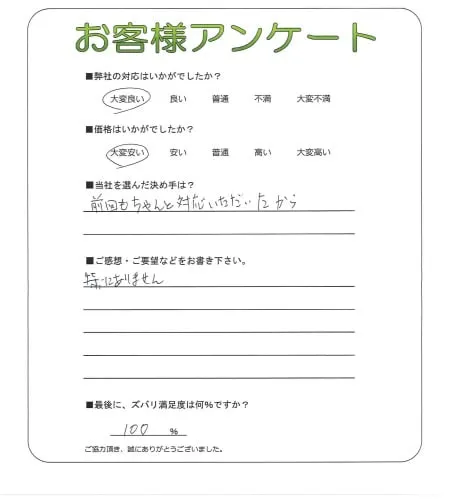 お客様アンケート
■弊社の対応はいかがでしたか？
大変良い 良い 普通 不満 大変不満
■価格はいかがでしたか？
大変安い 安い 普通 高い 大変高い
■当社を選んだ決め手は？
前回もちゃんと対応いただいたから
■ご感想・ご要望などをお書き下さい。
特にありません
■最後に、ズバリ満足度は何%ですか？
100 %
ご協力頂き、誠にありがとうございました。